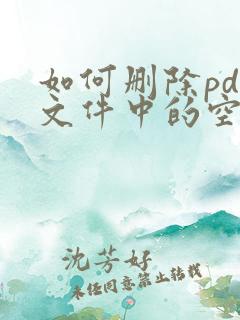 如何删除pd
文件中的空
沈芳好
未经同意禁止转载